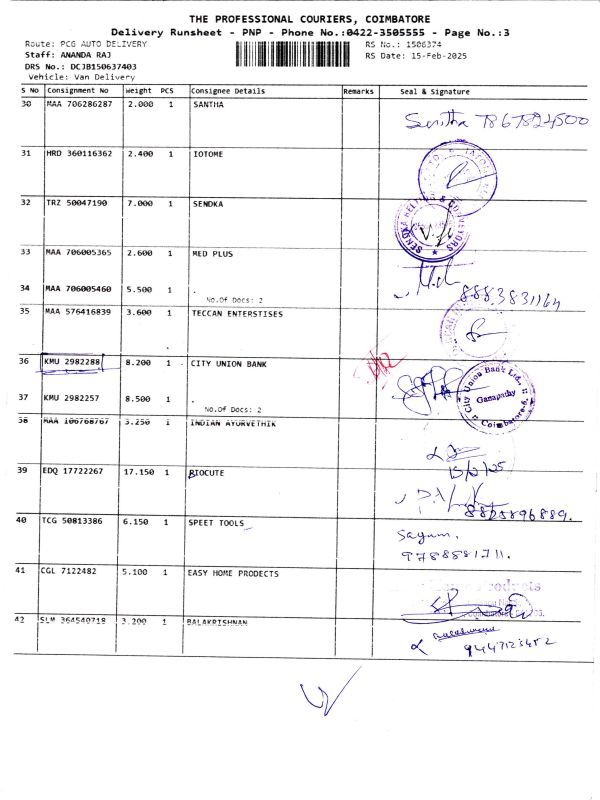 THE PROFESSIONAL COURIERS, COIMBATORE
Delivery Runsheet - PNP - Phone No.:0422-3505555 - Page No.:3
Route: PCG AUTO DELIVERY RS No.: 1506374
Staff: ANANDA RAJ RS Date: 15-Feb-2025
DRS No.: DCJB150637403
Vehicle: Van Delivery
S No Consignment No Weight PCS Consignee Details Remarks Seal & Signature
30 MAA 706286287 2.000 1 SANTHA
31 HRD 360116362 2.400 1 IOTOME
32 TRZ 50047190 7.000 1 SENDKA
SENDKA BELTING &
33 MAA 706005365 2.600 1 MED PLUS
34 MAA 706005460 5.500 1 .
No.Of Docs: 2
8883831164
35 MAA 576416839 3.600 1 TECCAN ENTERSTISES
.
36 KMU 2982288 8.200 1 CITY UNION BANK
City Union Bank Ltd.,
Ganapathy
Coimbatore-6.
37 KMU 2982257 8.500 1 .
No.Of Docs: 2
38 MAA 106768767 3.250 1 INDIAN AYURVETHIK
15/2/25
39 EDQ 17722267 17.150 1 BIOCUTE
8825896889.
40 TCG 50813386 6.150 1 SPEET TOOLS
9788881711.
41 CGL 7122482 5.100 1 EASY HOME PRODECTS
Products
42 SLM 364540718 3.200 1 BALAKRISHNAN
9447123452